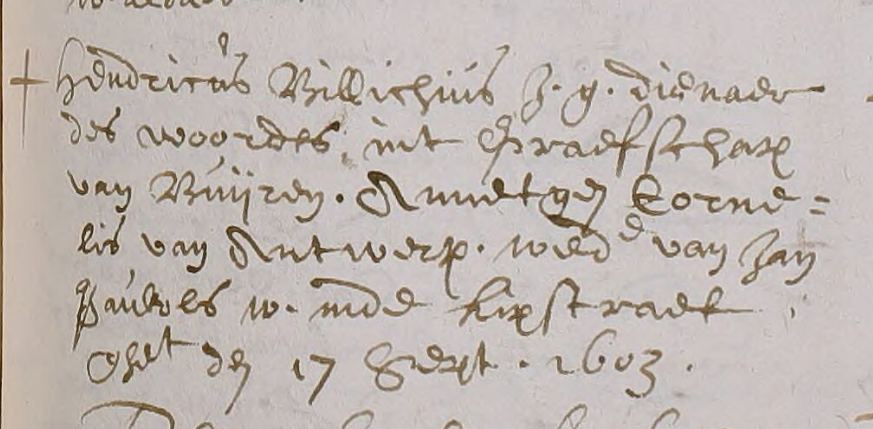 + Hendricus Billichius J. g. dienaer
des woordes, int Graefschap
van Buijren. Annetgen Corne=
lis van Antwerp. wed^e van Jan
Pauwels w. inde kipstraet
Ghet den 17 Sept. 1603.